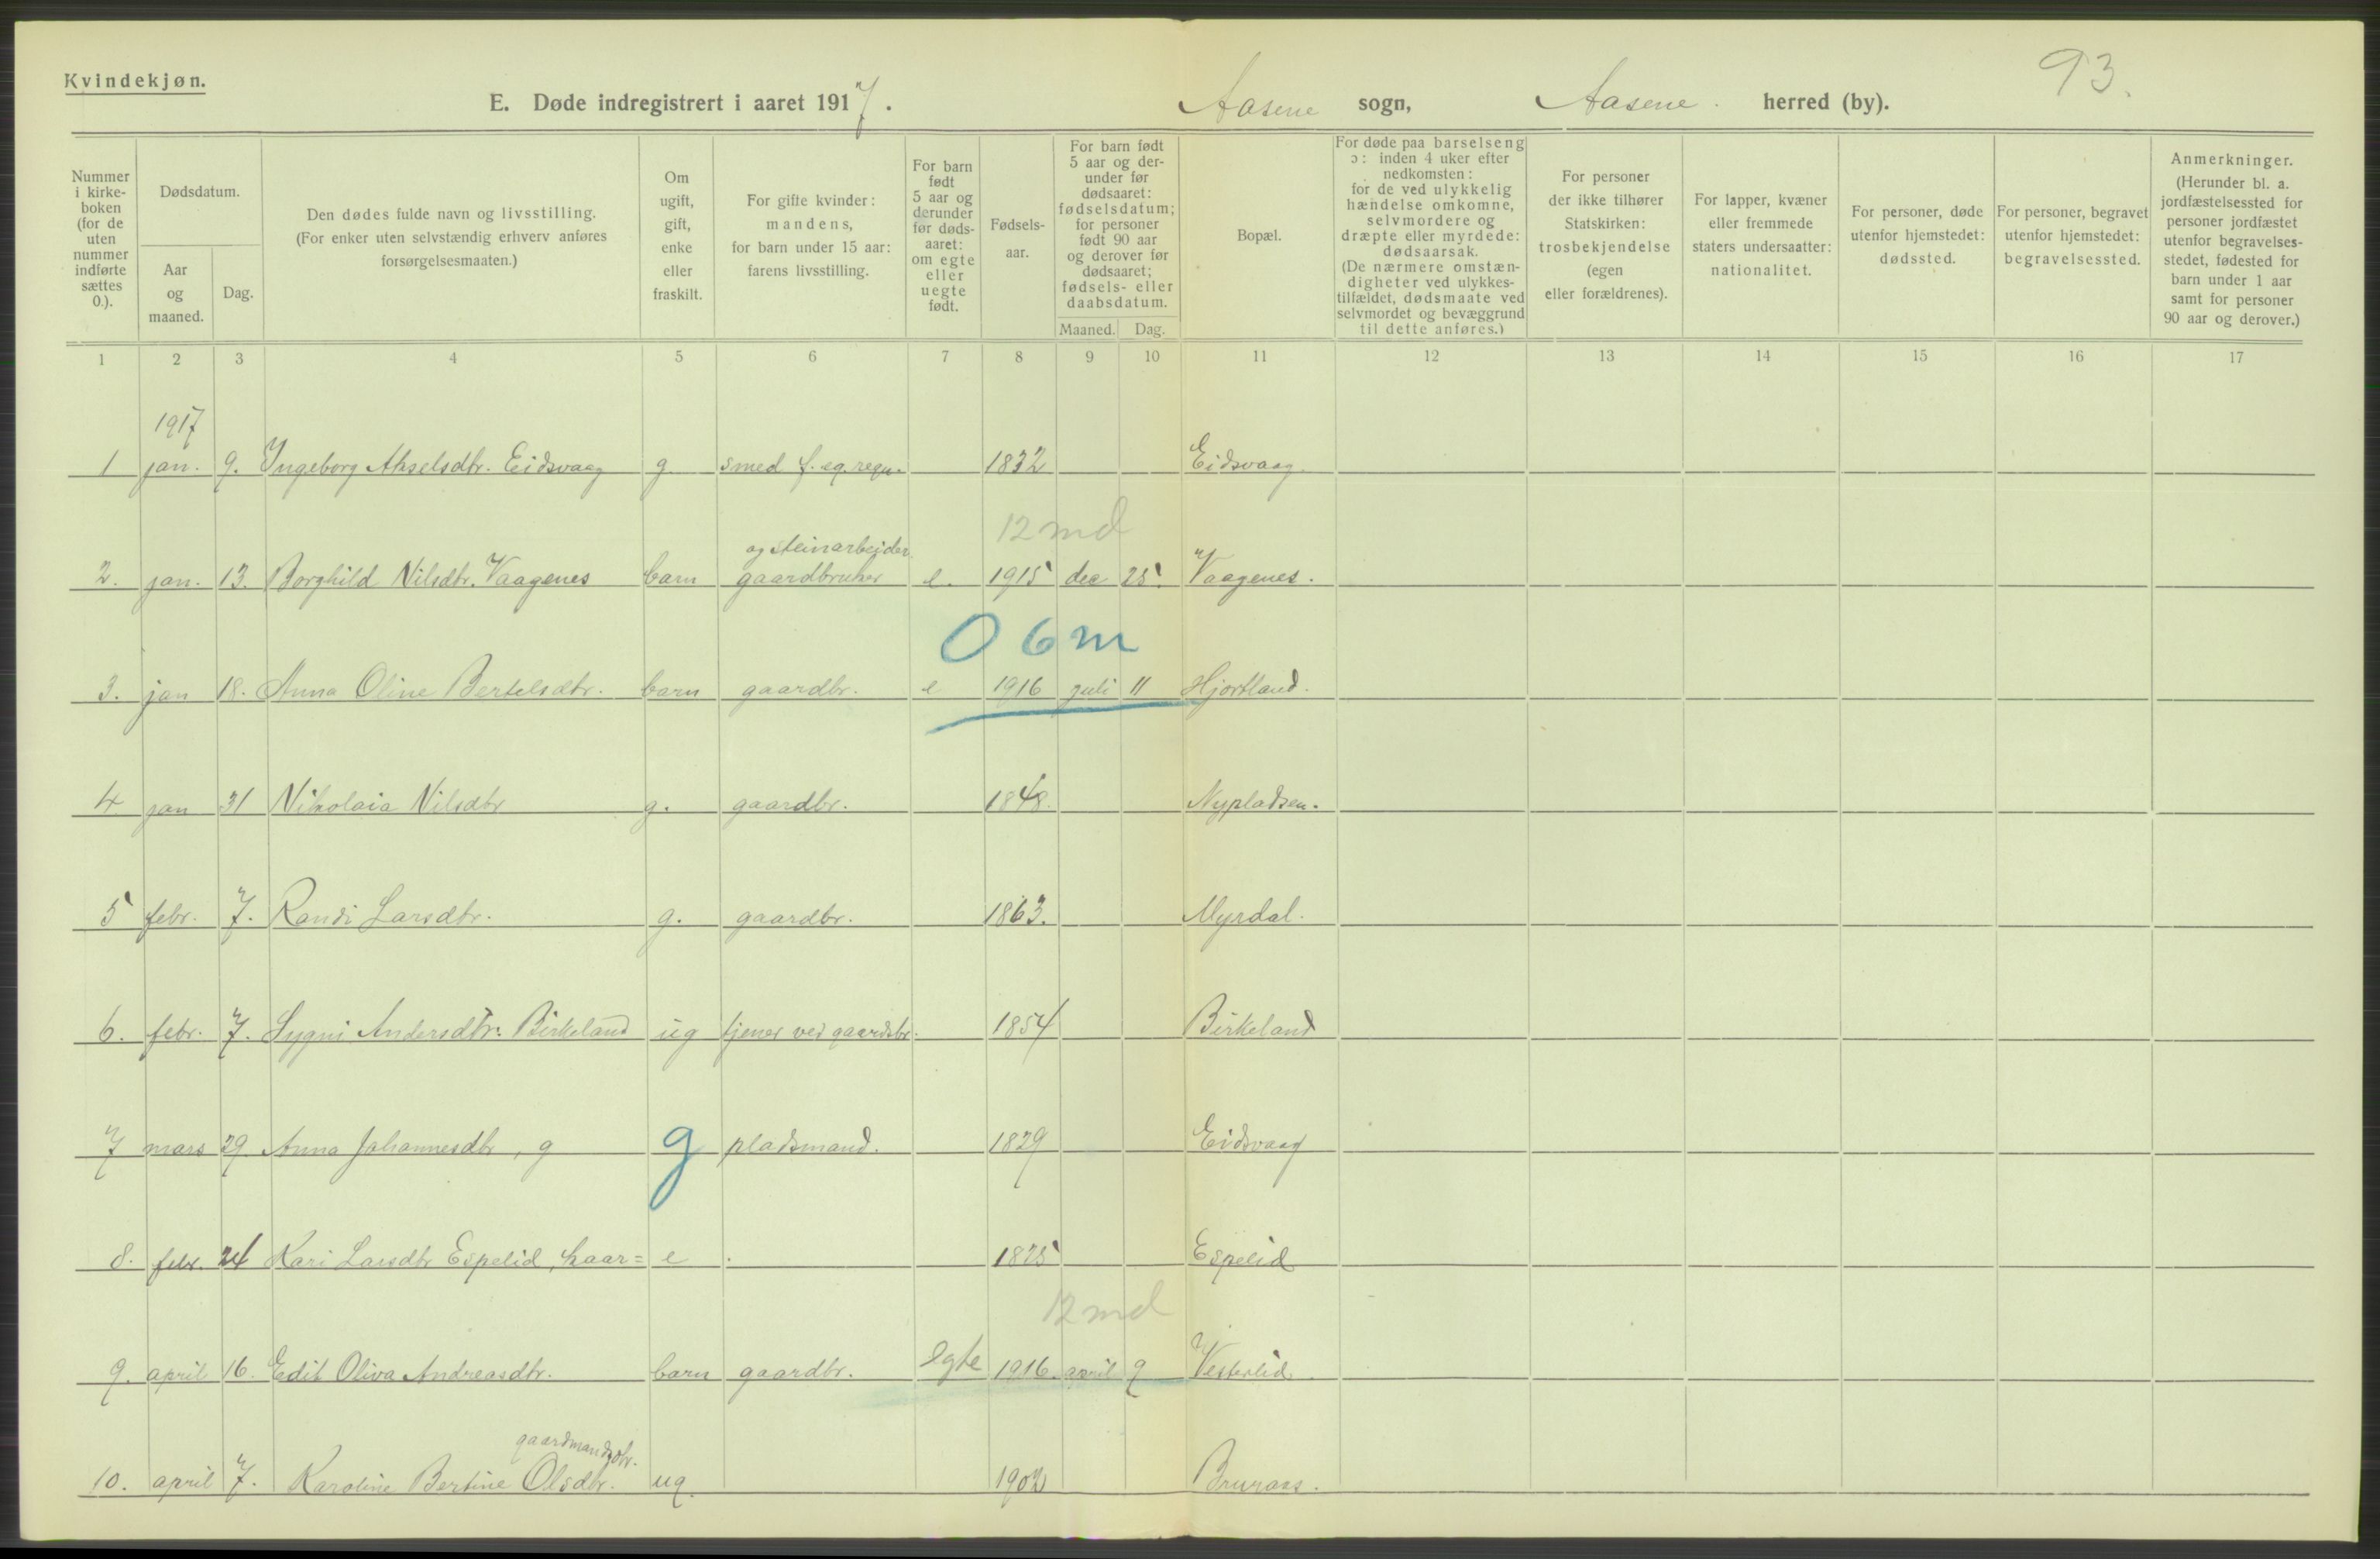 93.
Kvindekjøn.
E. Døde indregistrert i aaret 1917. Aasene sogn, Aasene. herred (by).
Nummer i kirkeboken (for de uten nummer indførte sættes 0.).
Dødsdatum.
Aar og maaned.
Dag.
Den dødes fulde navn og livsstilling. (For enker uten selvstændig erhverv anføres forsørgelsesmaaten.)
Om ugift, gift, enke eller fraskilt.
For gifte kvinder: mandens, for barn under 15 aar: farens livsstilling.
For barn født 5 aar og derunder før dødsaaret: om egte eller uegte født.
Fødselsaar.
For barn født 5 aar og derunder før dødsaaret: fødselsdatum; for personer født 90 aar og derover før dødsaaret; fødsels- eller daabsdatum.
Maaned. Dag.
Bopæl.
For døde paa barselseng ɔ: inden 4 uker efter nedkomsten: for de ved ulykkelig hændelse omkomne, selvmordere og dræpte eller myrdede: dødsaarsak. (De nærmere omstændigheter ved ulykkestilfældet, dødsmaate ved selvmordet og bevæggrund til dette anføres.)
For personer der ikke tilhører Statskirken: trosbekjendelse (egen eller forældrenes).
For lapper, kvæner eller fremmede staters undersaatter: nationalitet.
For personer, døde utenfor hjemstedet: dødssted.
For personer, begravet utenfor hjemstedet: begravelsessted.
Anmerkninger. (Herunder bl. a. jordfæstelsessted for personer jordfæstet utenfor begravelsesstedet, fødested for barn under 1 aar samt for personer 90 aar og derover.)
1 2 3 4 5 6 7 8 9 10 11 12 13 14 15 16 17
1917
1 jan. 9. Ingeborg Akselsdtr. Eidsvaag g. smed f. eg. regn. 1832 Eidsvaag.
12 md
og steinarbeider
2. jan. 13. Borghild Nilsdtr. Vaagenes barn gaardbruker e. 1915 dec 25. Vaagenes.
0 6 m
3. jan 18. Anna Oline Bertelsdtr. barn gaardbr. e 1916 juli 11 Hjortland.
4 jan 31 Nikolaia Nilsdtr g. gaardbr. 1848. Nypladsen.
5 febr. 7. Randi Larsdtr. g. gaardbr. 1863. Myrdal.
6. febr. 7. Sygni Andersdtr. Birkeland ug tjener ved gaardsbr. 1854 Birkeland
7 mars 29 Anna Johannesdtr, g g pladsmand. 1829 Eidsvaag
8. febr. 24 Kari Larsdtr Espelid, kaar= e . 1825 Espelid
12 md
9. april 16. Edit Oliva Andreasdtr. barn gaardbr. egte 1916. april 9 Vesterlid.
gaardmandsdtr.
10. april 7. Karoline Bertine Olsdtr. ug. 1902 Bruraas.